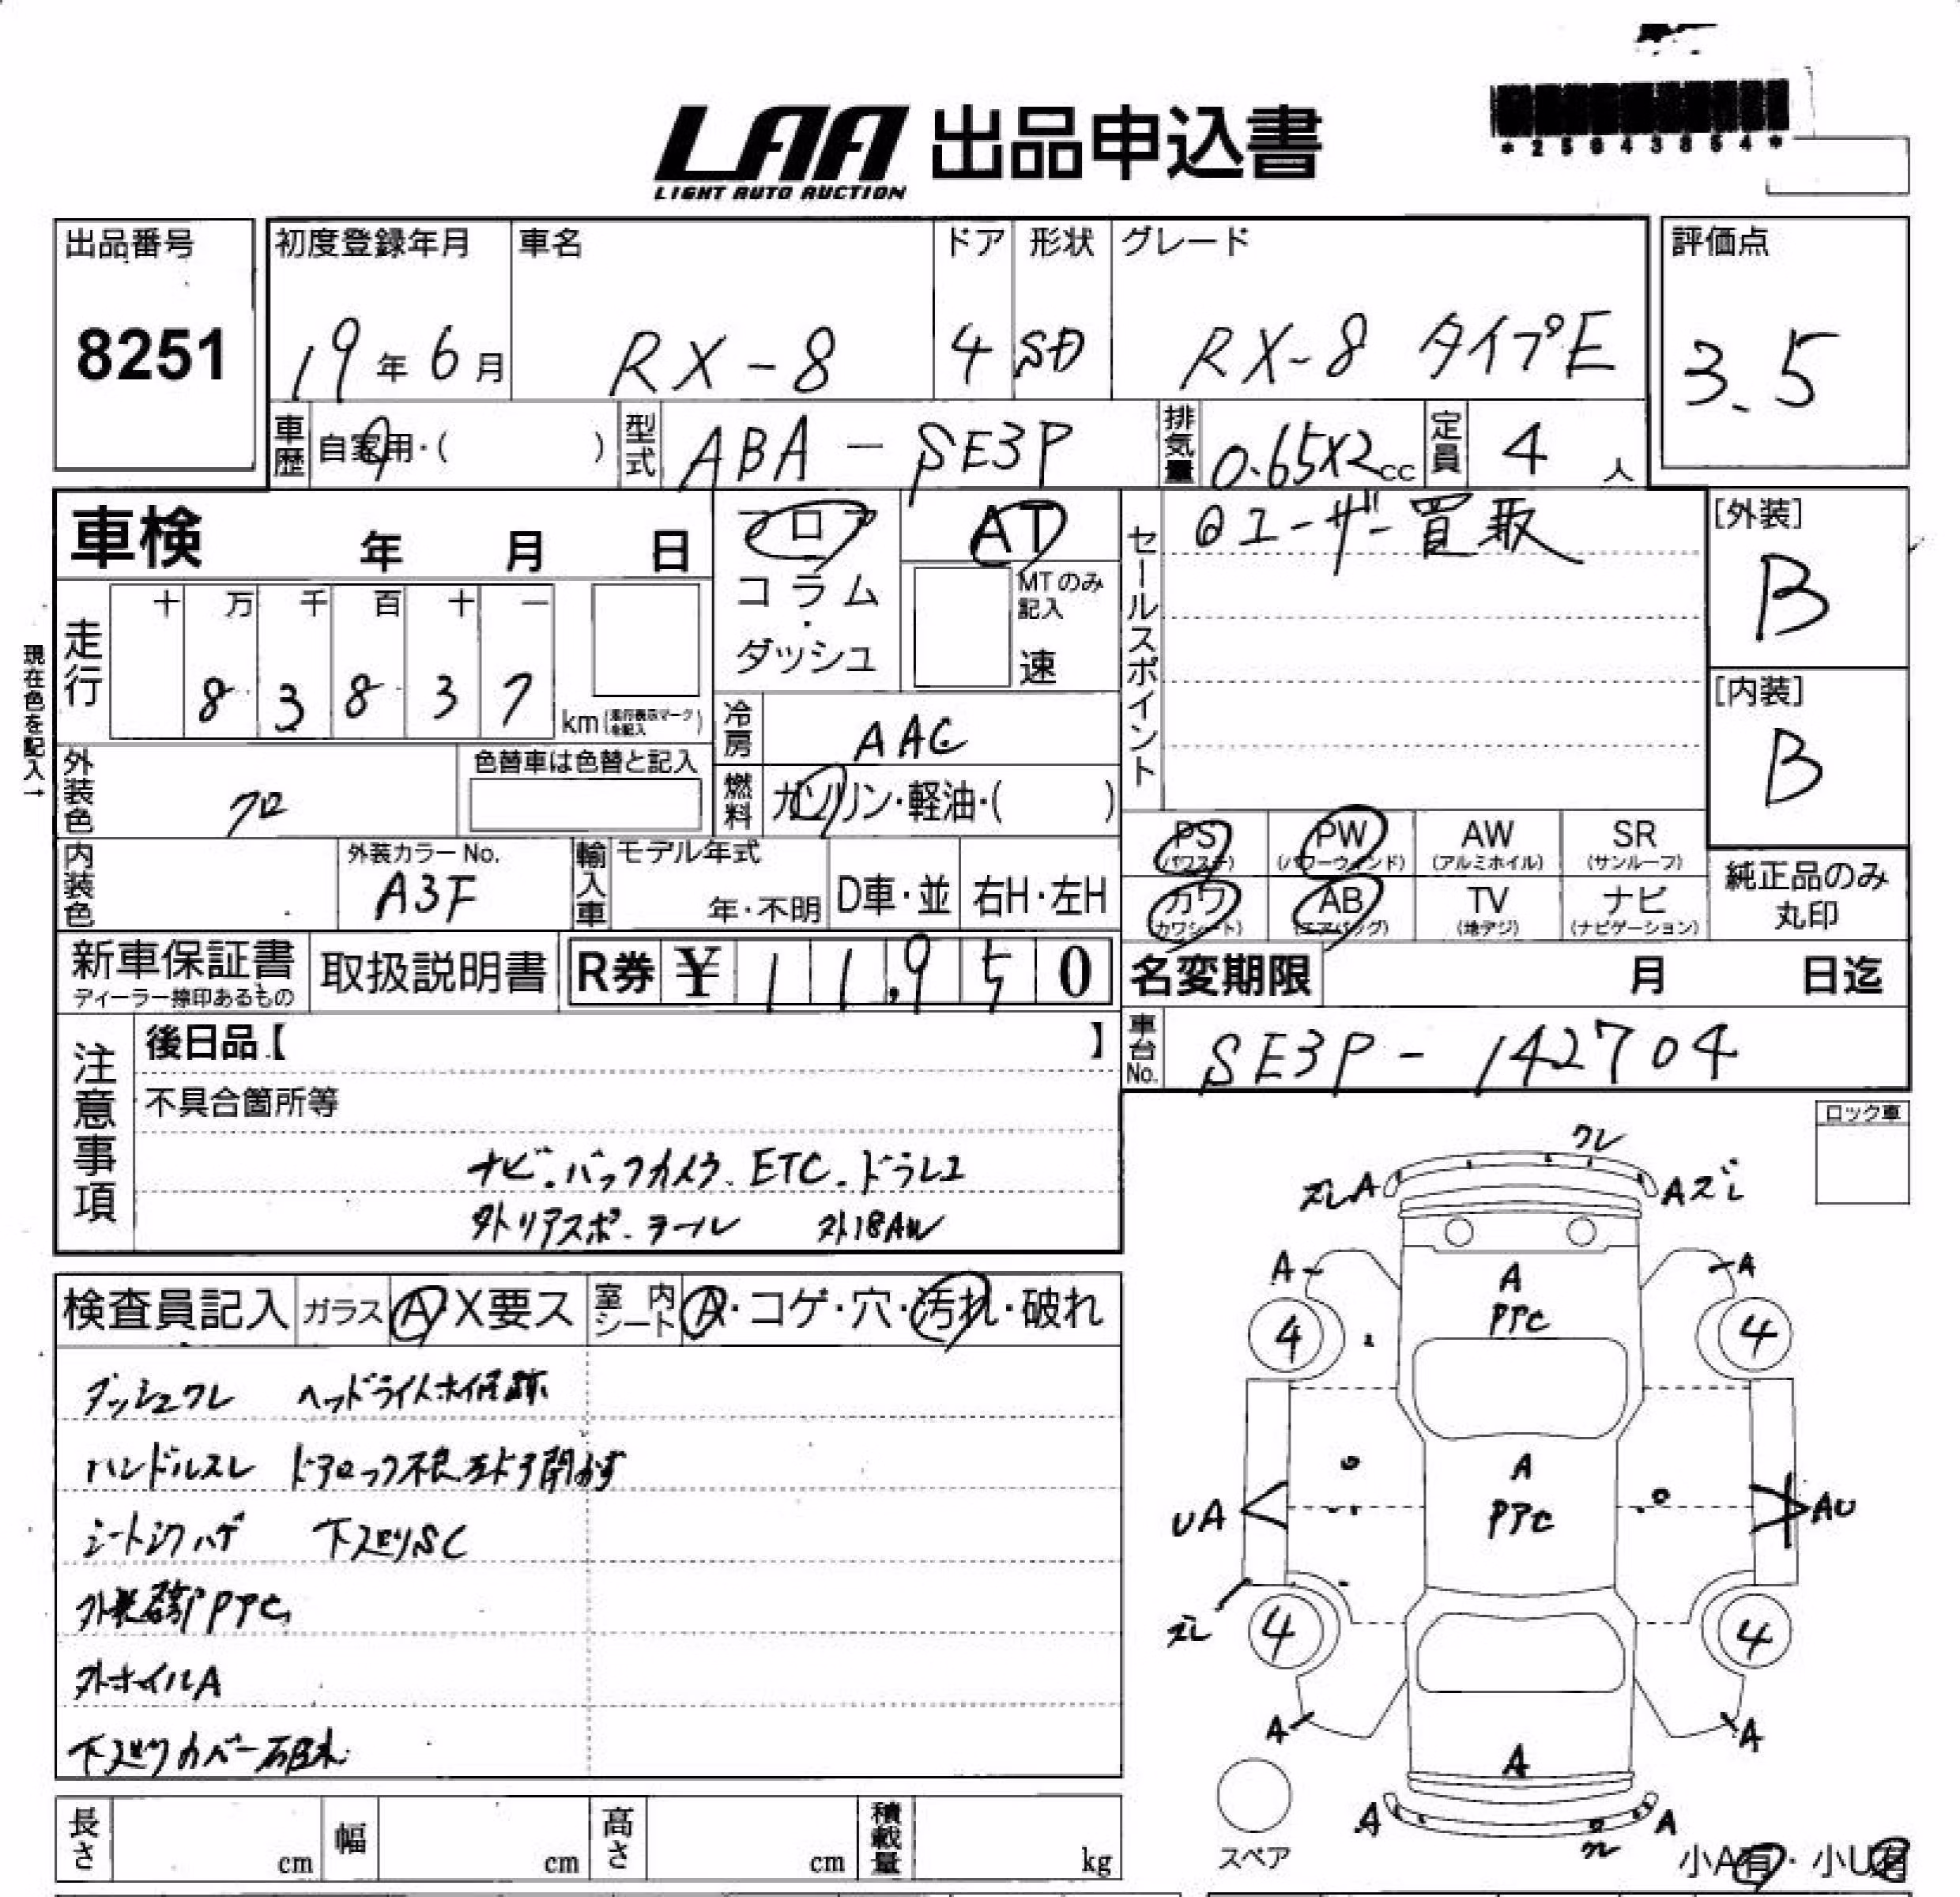 LAA 出品申込書
LIGHT AUTO AUCTION
*25043854*
出品番号
8251
初度登録年月
19年6月
車名
RX-8
ドア
4
形状
SD
グレード
RX-8 タイプE
評価点
3.5
車歴
自家用・( )
型式
ABA-SE3P
排気量
0.65X2cc
定員
4人
車検 年 月 日
フロア
コラム
・
ダッシュ
AT
MTのみ
記入
速
セールスポイント
ユーザー買取
[外装]
B
[内装]
B
現在色を記入→
走行
十 万 千 百 十 一
8 3 8 3 7
km(走行表示マークを記入)
冷房
AAC
外装色
クロ
色替車は色替と記入
燃料
ガソリン・軽油・( )
PS
(パワステ)
PW
(パワーウィンド)
AW
(アルミホイル)
SR
(サンルーフ)
カワ
(カワシート)
AB
(エアバッグ)
TV
(地デジ)
ナビ
(ナビゲーション)
純正品のみ
丸印
内装色
外装カラーNo.
A3F
輸入車
モデル年式
年・不明
D車・並
右H・左H
新車保証書
ディーラー捺印あるもの
取扱説明書
R券 ¥ 11,950
名変期限 月 日迄
車台No.
SE3P-142704
注意事項
後日品【 】
不具合箇所等
ナビ.バックカメラ.ETC.ドラレコ
外リアスポ.テール 外18AW
ロック車
検査員記入
ガラス A X要ス
室内シート A・コゲ・穴・汚れ・破れ
ダッシュワレ ヘッドライト補修跡
ハンドルスレ ドアロック不良 左ドア開かず
シートシワハゲ 下廻りSC
外装各所PPC
外ホイルA
下廻りカバー破れ
ワレ
ズレA
Aズレ
A
A
A
PPC
4
4
A
PPC
UA
AU
ズレ
4
4
A
A
A
A
A
ワレ
スペア
小A有・小U有
長さ cm
幅 cm
高さ cm
積載量 kg